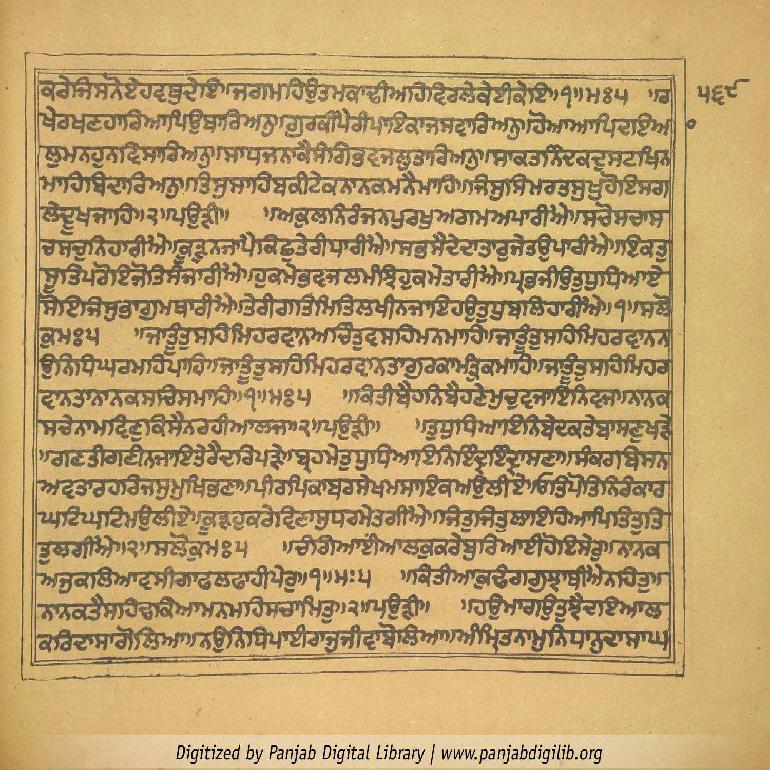 ਕਰੇਜਿਸਨੋਏਹਵਥੁਦੇਇ॥ਜਗਮਹਿਉਤਮਕਾਢੀਅਹਿਵਿਰਲੇਕੇਈਕੇਇ॥੧॥ਮਃ੫ ॥ਰ ੫੬੯
ਖੇਰਖਣਹਾਰਿਆਪਿਉਬਾਰਿਅਨੁ॥ਗੁਰਕੀਪੈਰੀਪਾਇਕਾਜਸਵਾਰਿਅਨੁ॥ਹੋਆਆਪਿਦਇਅ
ਲੁਮਨਹੁਨਵਿਸਾਰਿਅਨੁ॥ਸਾਧਜਨਾਕੈਸੰਗਿਭਵਜਲੁਤਾਰਿਅਨੁ॥ਸਾਕਤਨਿੰਦਕਦੁਸਟਖਿਨ
ਮਾਹਿਬਿਦਾਰਿਅਨੁ॥ਤਿਸੁਸਾਹਿਬਕੀਟੇਕਨਾਨਕਮਨੈਮਾਹਿ॥ਜਿਸੁਸਿਮਰਤਸੁਖੁਹੋਇਸਗ
ਲੇਦੂਖਜਾਹਿ॥੨॥ਪਉੜੀ॥ ॥ਅਕੁਲਨਿਰੰਜਨਪੁਰਖੁਅਗਮਅਪਾਰੀਐ॥ਸਚੋਸਚਾਸ
ਚਸਚੁਨਿਹਾਰੀਐ॥ਕੂੜੁਨਜਾਪੈਕਿਛੁਤੇਰੀਧਾਰੀਐ॥ਸਭਸੈਦੇਦਾਤਾਰੁਜੇਤਉਪਾਰੀਐ॥ਇਕਤੁ
ਸੂਤਿਪਰੋਇਜੋਤਿਸੰਜਾਰੀਐ॥ਹੁਕਮੇਭਵਜਲਮੰਝਿਹੁਕਮੇਤਾਰੀਐ॥ਪ੍ਰਭਜੀਉਤੁਧੁਧਿਆਏ
ਸੋਇਜਿਸੁਭਾਗੁਮਥਾਰੀਐ॥ਤੇਰੀਗਤਿਮਿਤਿਲਖੀਨਜਾਇਹਉਤੁਧੁਬਲਿਹਾਰੀਐ॥੧॥ਸਲੋ
ਕੁਮਃ੫ ॥ਜਾਤੂੰਤੁਸਹਿਮਿਹਰਵਾਨਅਚਿੰਤੁਵਸਹਿਮਨਮਾਹਿ॥ਜਾਤੂੰਤੁਸਹਿਮਿਹਰਵਾਨਨ
ਉਨਿਧਿਘਰਮਹਿਪਾਹਿ॥ਜਾਤੂੰਤੁਸਹਿਮਿਹਰਵਾਨਤਾਗੁਰਕਾਮੰਤ੍ਰੁਕਮਾਹਿ॥ਜਾਤੂੰਤੁਸਹਿਮਿਹਰ
ਵਾਨਤਾਨਾਨਕਸਚਿਸਮਾਹਿ॥੧॥ਮਃ੫ ॥ਕਿਤੀਬੈਹਨਿਬੈਹਣੇਮੁਚੁਵਜਾਇਨਿਵਜ॥ਨਾਨਕ
ਸਚੇਨਾਮਵਿਣੁਕਿਸੈਨਰਹੀਆਲਜ॥੨॥ਪਉੜੀ॥ ॥ਤੁਧੁਧਿਆਇਨਿਬੇਦਕਤੇਬਾਸਣੁਖੜੇ
॥ਗਣਤੀਗਣੀਨਜਾਇਤੇਰੈਦਰਿਪੜੇ॥ਬ੍ਰਹਮੇਤੁਧੁਧਿਆਇਨਿਇੰਦ੍ਰਇੰਦ੍ਰਾਸਣਾ॥ਸੰਕਰਬਿਸਨ
ਅਵਤਾਰਹਰਿਜਸੁਮੁਖਿਭਣਾ॥ਪੀਰਪਿਕਾਬਰਸੇਖਮਸਾਇਕਅਉਲੀਏ॥ਓਤਿਪੋਤਿਨਿਰੰਕਾਰ
ਘਟਿਘਟਿਮਉਲੀਏ॥ਕੂੜਹੁਕਰੇਵਿਣਾਸੁਧਰਮੇਤਗੀਐ॥ਜਿਤੁਜਿਤੁਲਾਇਹਿਆਪਿਤਿਤੁਤਿ
ਤੁਲਗੀਐ॥੨॥ਸਲੋਕੁਮਃ੫ ॥ਚੰਗਿਆਈਆਲਕੁਕਰੇਬੁਰਿਆਈਹੋਇਸੇਰੁ॥ਨਾਨਕ
ਅਜੁਕਲਿਆਵਸੀਗਾਫਲਫਾਹੀਪੇਰੁ॥੧॥ਮਃ੫ ॥ਕਿਤੀਆਕੁਢੰਗਗੁਝਾਥੀਐਨਹਿਤੁ॥
ਨਾਨਕਤੈਸਹਿਢਕਿਆਮਨਮਹਿਸਚਾਮਿਤੁ॥੨॥ਪਉੜੀ॥ ॥ਹਉਮਾਗਉਤੁਝੈਦਇਆਲ
ਕਰਿਦਾਸਾਗੋਲਿਆ॥ਨਉਨਿਧਿਪਾਈਰਾਜੁਜੀਵਾਬੋਲਿਆ॥ਅੰਮ੍ਰਿਤਨਾਮੁਨਿਧਾਨੁਦਾਸਾਘ
Digitized by Panjab Digital Library | www.panjabdigilib.org